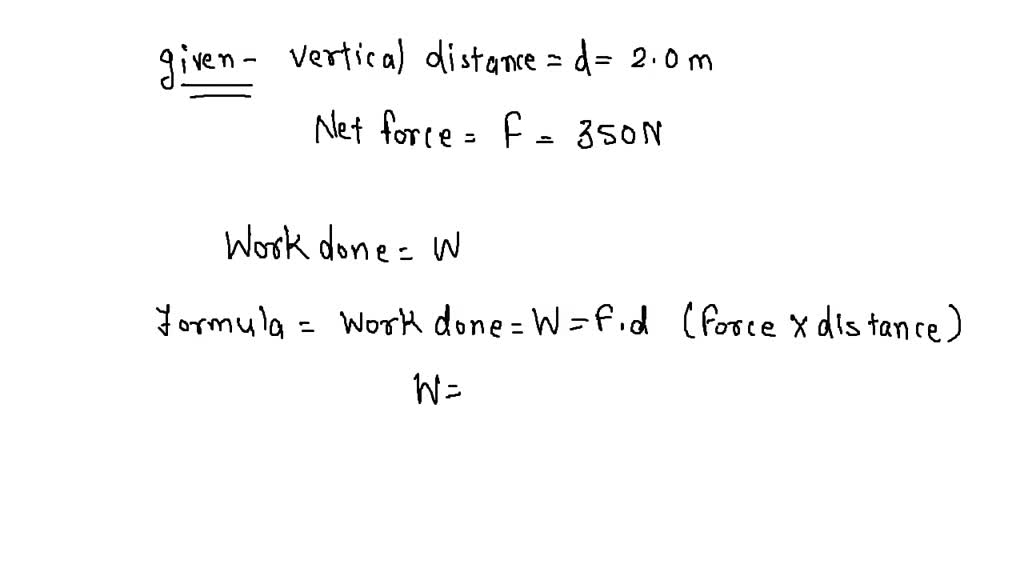 given - vertical distance = d = 2.0 m
Net force = F = 350N
Work done = W
Formula = Work done = W = F.d (Force x distance)
W =